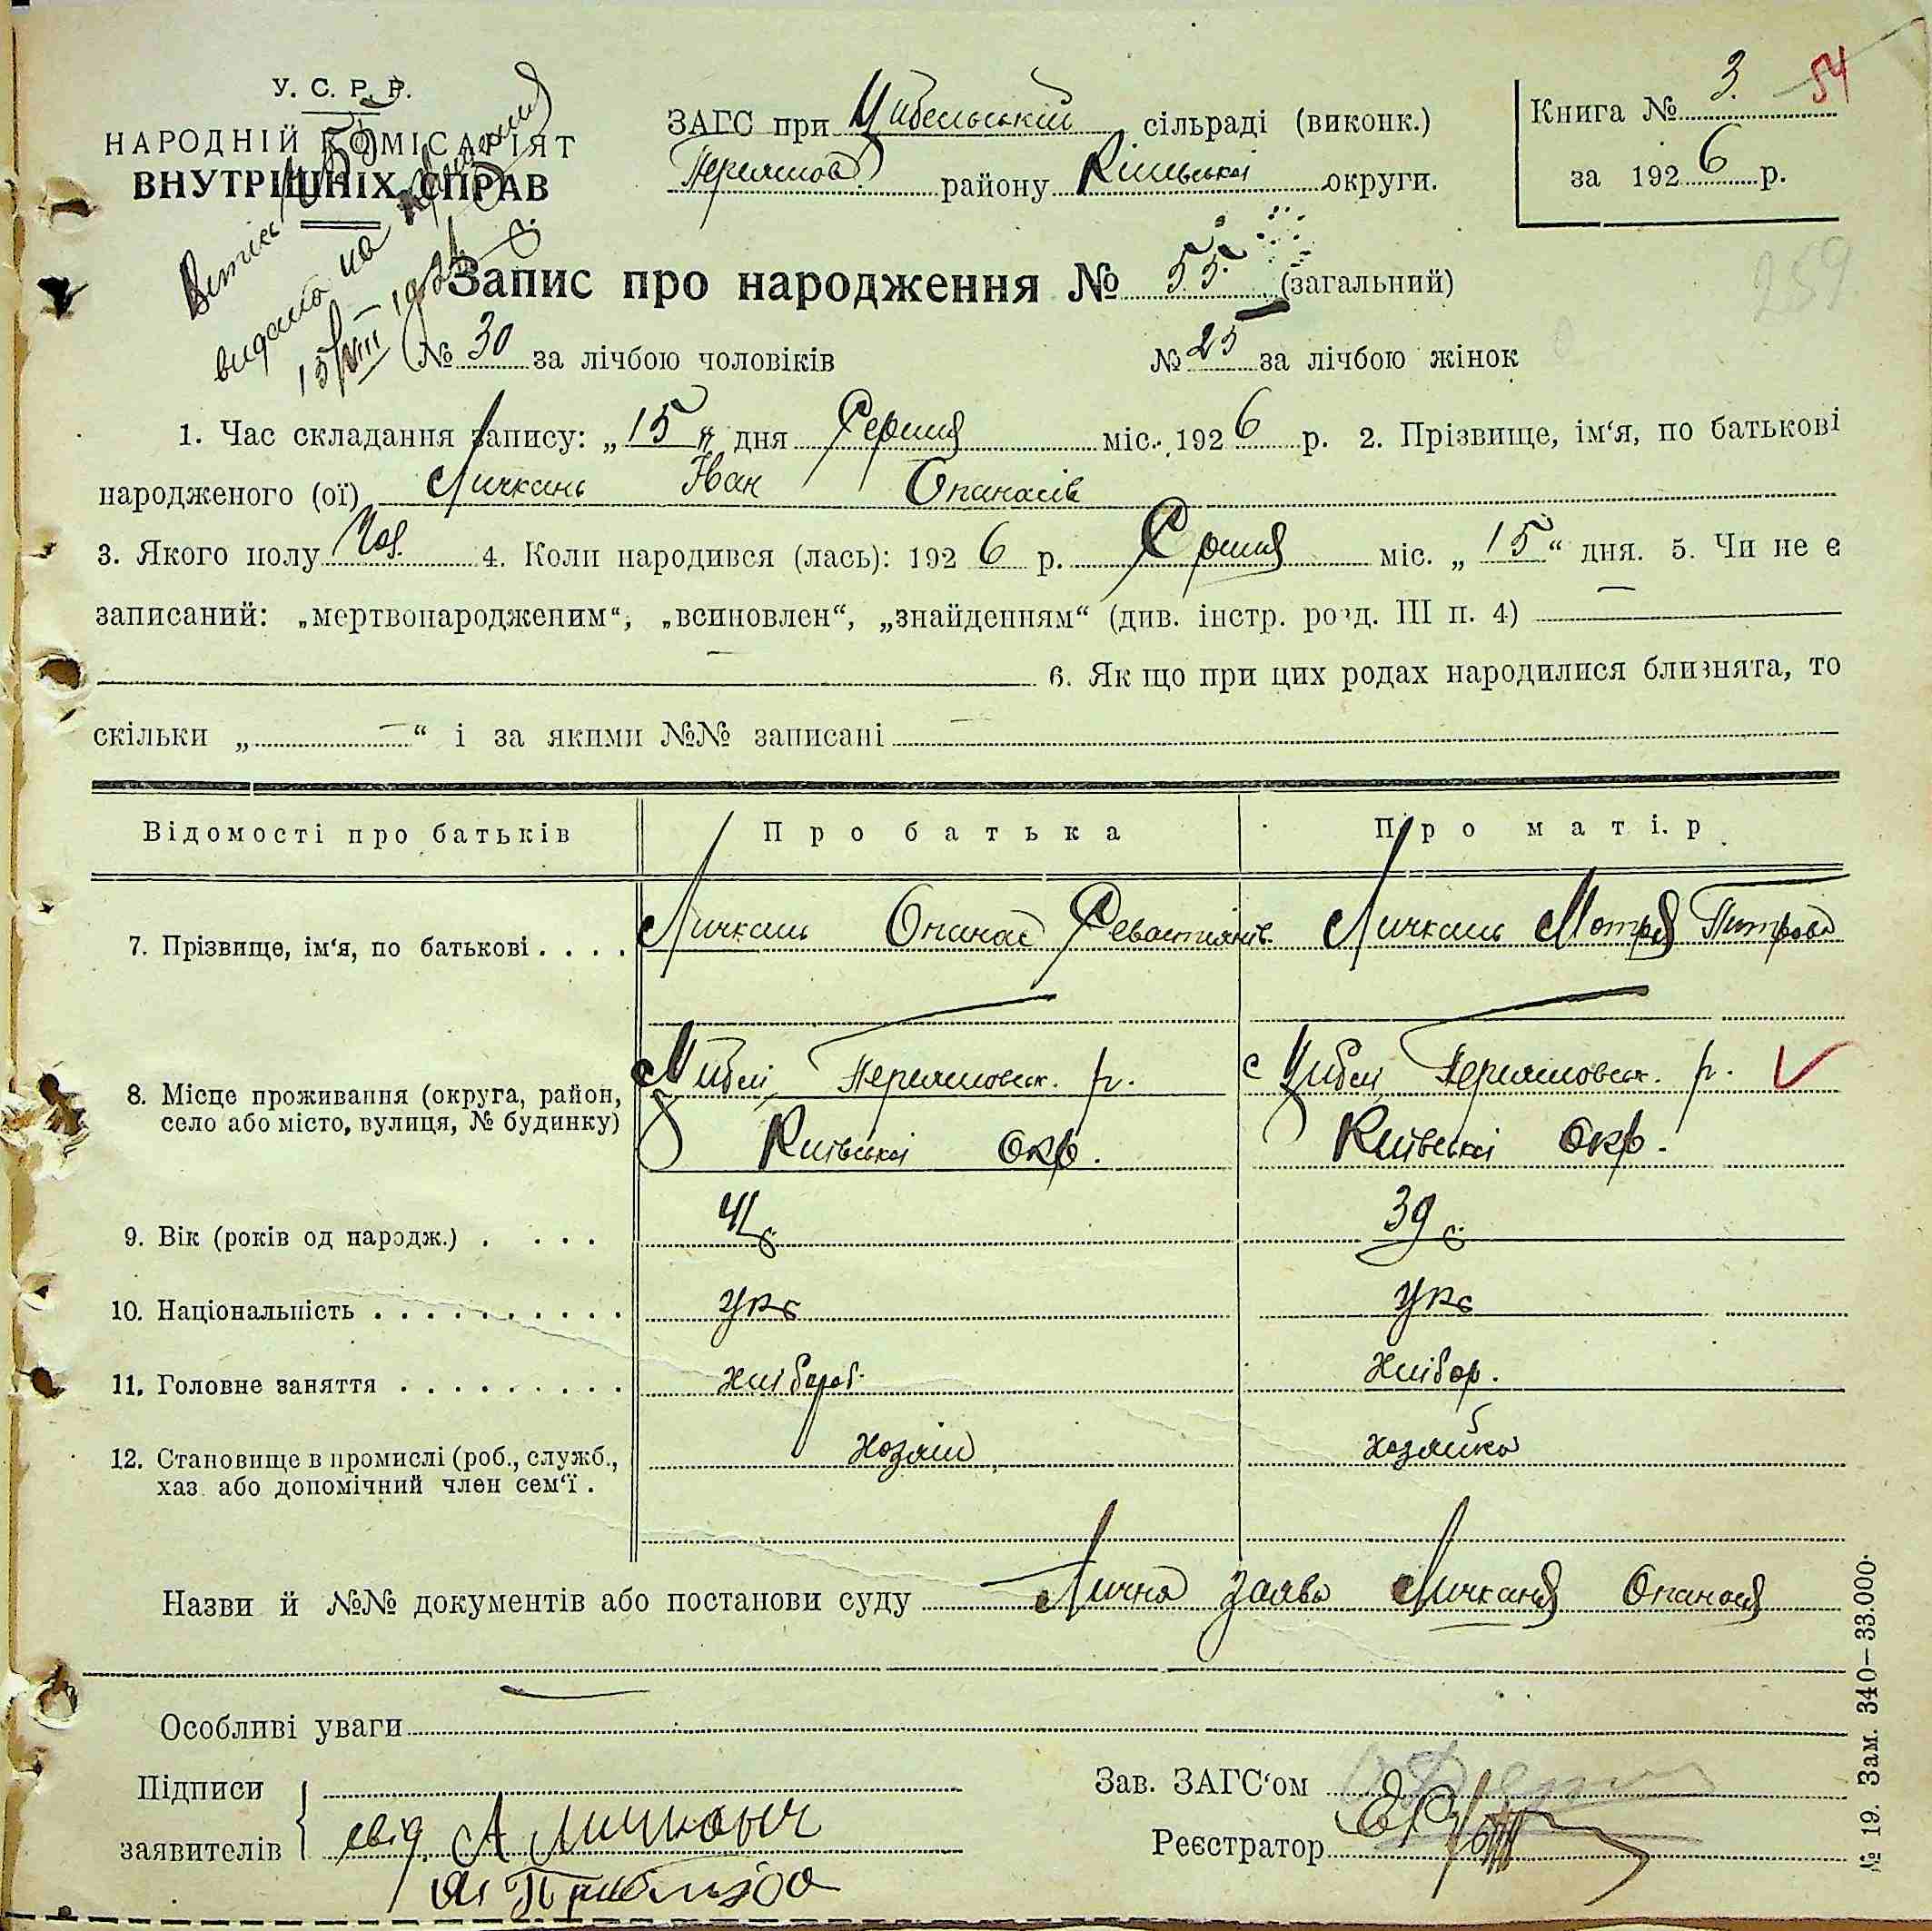 У. С. Р. Р.
НАРОДНІЙ КОМІСАРІЯТ
ВНУТРІШНІХ СПРАВ
ЗАГС при Цибельській сільраді (виконк.)
Переяслов. району Київської округи.
Книга № 3. 54
за 1926 р.
259
Витяг
видано на
15/VIII 1926
Запис про народження № 55 (загальний)
№ 30 за лічбою чоловіків № 25 за лічбою жінок
1. Час складання запису: „15“ дня Серпня міс. 1926 р. 2. Прізвище, ім‘я, по батькові
народженого (ої) Личкань Іван Опанасів
3. Якого полу Чол. 4. Коли народився (лась): 1926 р. Серпня міс. „15“ дня. 5. Чи не є
записаний: „мертвонародженим“, „всиновлен“, „знайденням“ (див. інстр. розд. III п. 4) —
— 6. Як що при цих родах народилися близнята, то
скільки „—“ і за якими №№ записані —
Відомості про батьків Про батька Про матір
7. Прізвище, ім‘я, по батькові . . . . Личкань Опанас Севастіянів Личкань Мотря Питрова
8. Місце проживання (округа, район, село або місто, вулиця, № будинку) с Цибелі Переясловськ. р. Київської Окр. с Цибелі Переясловськ. р. Київської Окр.
9. Вік (років од народж.) . . . . 41 39
10. Національність . . . . . . . . . . укр укр
11. Головне заняття . . . . . . . . . хлібороб. хлібор.
12. Становище в промислі (роб., служб., хаз або допомічний член сем‘ї . хозяїн хозяйка
Назви й №№ документів або постанови суду Лична заява Личканя Опанася
Особливі уваги
Підписи
заявителів свід. А Личкань
Зав. ЗАГС‘ом
Реєстратор
№ 19. Зам. 340—33.000.